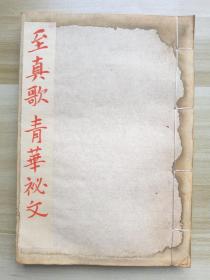 至真歌 青華祕文